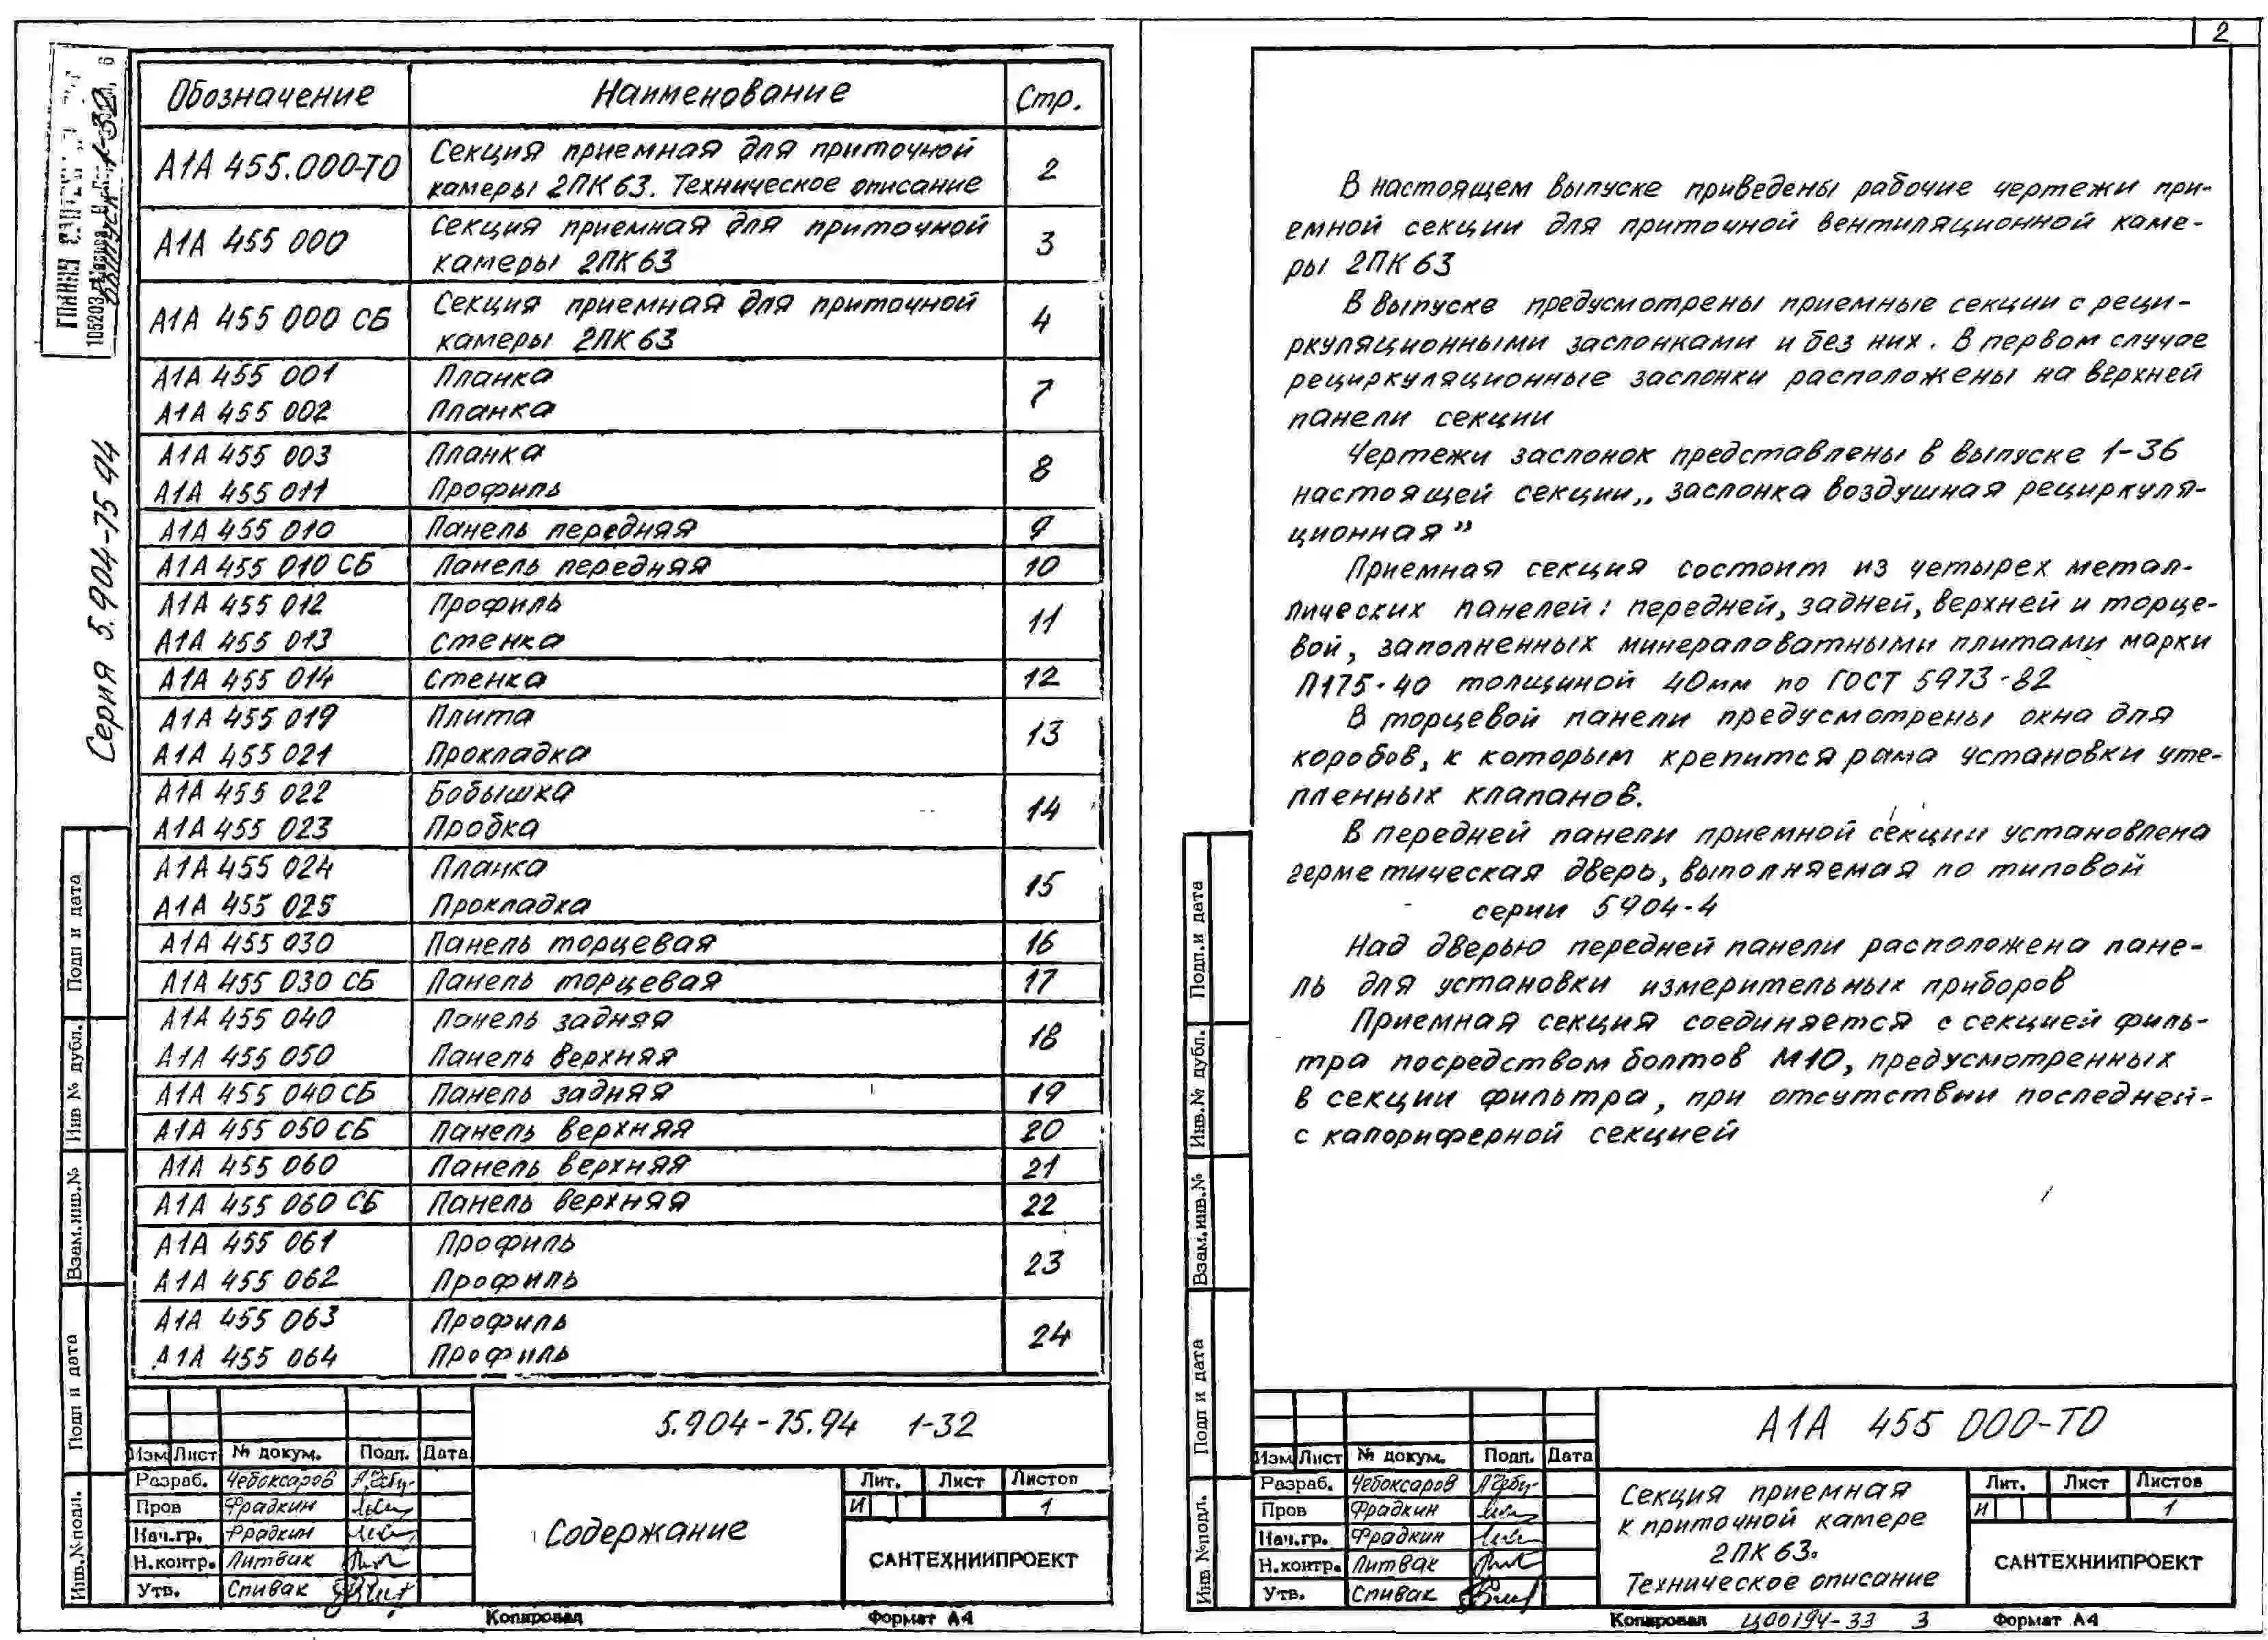 Обозначение Наименование Стр.
А1А 455.000-ТО Секция приемная для приточной камеры 2ПК63. Техническое описание 2
А1А 455 000 Секция приемная для приточной камеры 2ПК63 3
А1А 455 000 СБ Секция приемная для приточной камеры 2ПК63 4
А1А 455 001 Планка 7
А1А 455 002 Планка
А1А 455 003 Планка 8
А1А 455 011 Профиль
А1А 455 010 Панель передняя 9
А1А 455 010 СБ Панель передняя 10
А1А 455 012 Профиль 11
А1А 455 013 Стенка
А1А 455 014 Стенка 12
А1А 455 019 Плита 13
А1А 455 021 Прокладка
А1А 455 022 Бобышка 14
А1А 455 023 Пробка
А1А 455 024 Планка 15
А1А 455 025 Прокладка
А1А 455 030 Панель торцевая 16
А1А 455 030 СБ Панель торцевая 17
А1А 455 040 Панель задняя 18
А1А 455 050 Панель верхняя
А1А 455 040 СБ Панель задняя 19
А1А 455 050 СБ Панель верхняя 20
А1А 455 060 Панель верхняя 21
А1А 455 060 СБ Панель верхняя 22
А1А 455 061 Профиль 23
А1А 455 062 Профиль
А1А 455 063 Профиль 24
А1А 455 064 Профиль
Серия 5.904-75 94
Подп и дата
Инв № дубл.
Взам.инв.№
Подп и дата
Инв.№подл.
5.904-75.94 1-32
Изм Лист № докум. Подп. Дата
Разраб. Чебоксаров
Пров Фрадкин
Нач.гр. Фрадкин
Н.контр. Литвак
Утв. Спивак
Содержание
Лит. Лист Листов
И 1
САНТЕХНИИПРОЕКТ
Копировал Формат А4
2
В настоящем выпуске приведены рабочие чертежи при-
емной секции для приточной вентиляционной каме-
ры 2ПК63
В выпуске предусмотрены приемные секции с реци-
ркуляционными заслонками и без них. В первом случае
рециркуляционные заслонки расположены на верхней
панели секции
Чертежи заслонок представлены в выпуске 1-36
настоящей секции „заслонка воздушная рециркуля-
ционная”
Приемная секция состоит из четырех метал-
лических панелей: передней, задней, верхней и торце-
вой, заполненных минераловатными плитами марки
П175-40 толщиной 40мм по ГОСТ 5973-82
В торцевой панели предусмотрены окна для
коробов, к которым крепится рама установки уте-
пленных клапанов.
В передней панели приемной секции установлена
герметическая дверь, выполняемая по типовой
серии 5904-4
Над дверью передней панели расположена пане-
ль для установки измерительных приборов
Приемная секция соединяется с секцией филь-
тра посредством болтов М10, предусмотренных
в секции фильтра, при отсутствии последней-
с калориферной секцией
Подп.и дата
Инв.№ дубл.
Взам.инв.№
Подп и дата
Инв №подл.
А1А 455 000-ТО
Изм Лист № докум. Подп. Дата
Разраб. Чебоксаров
Пров Фрадкин
Нач.гр. Фрадкин
Н.контр. Литвак
Утв. Спивак
Секция приемная
к приточной камере
2ПК63.
Техническое описание
Лит. Лист Листов
И 1
САНТЕХНИИПРОЕКТ
Копировал Ц00194-33 3 Формат А4